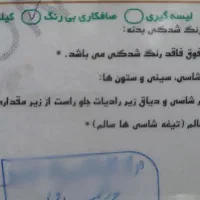 لیسه گیری صافکاری بی رنگ
رنگ شدگی بدنه:
فوق فاقد رنگ شدگی می باشد. *
شاسی، سینی و ستون ها:
شاسی و دیاق زیر رادیات جلو راست از زیر مقداری
سالم (تیغه شاسی ها سالم) *